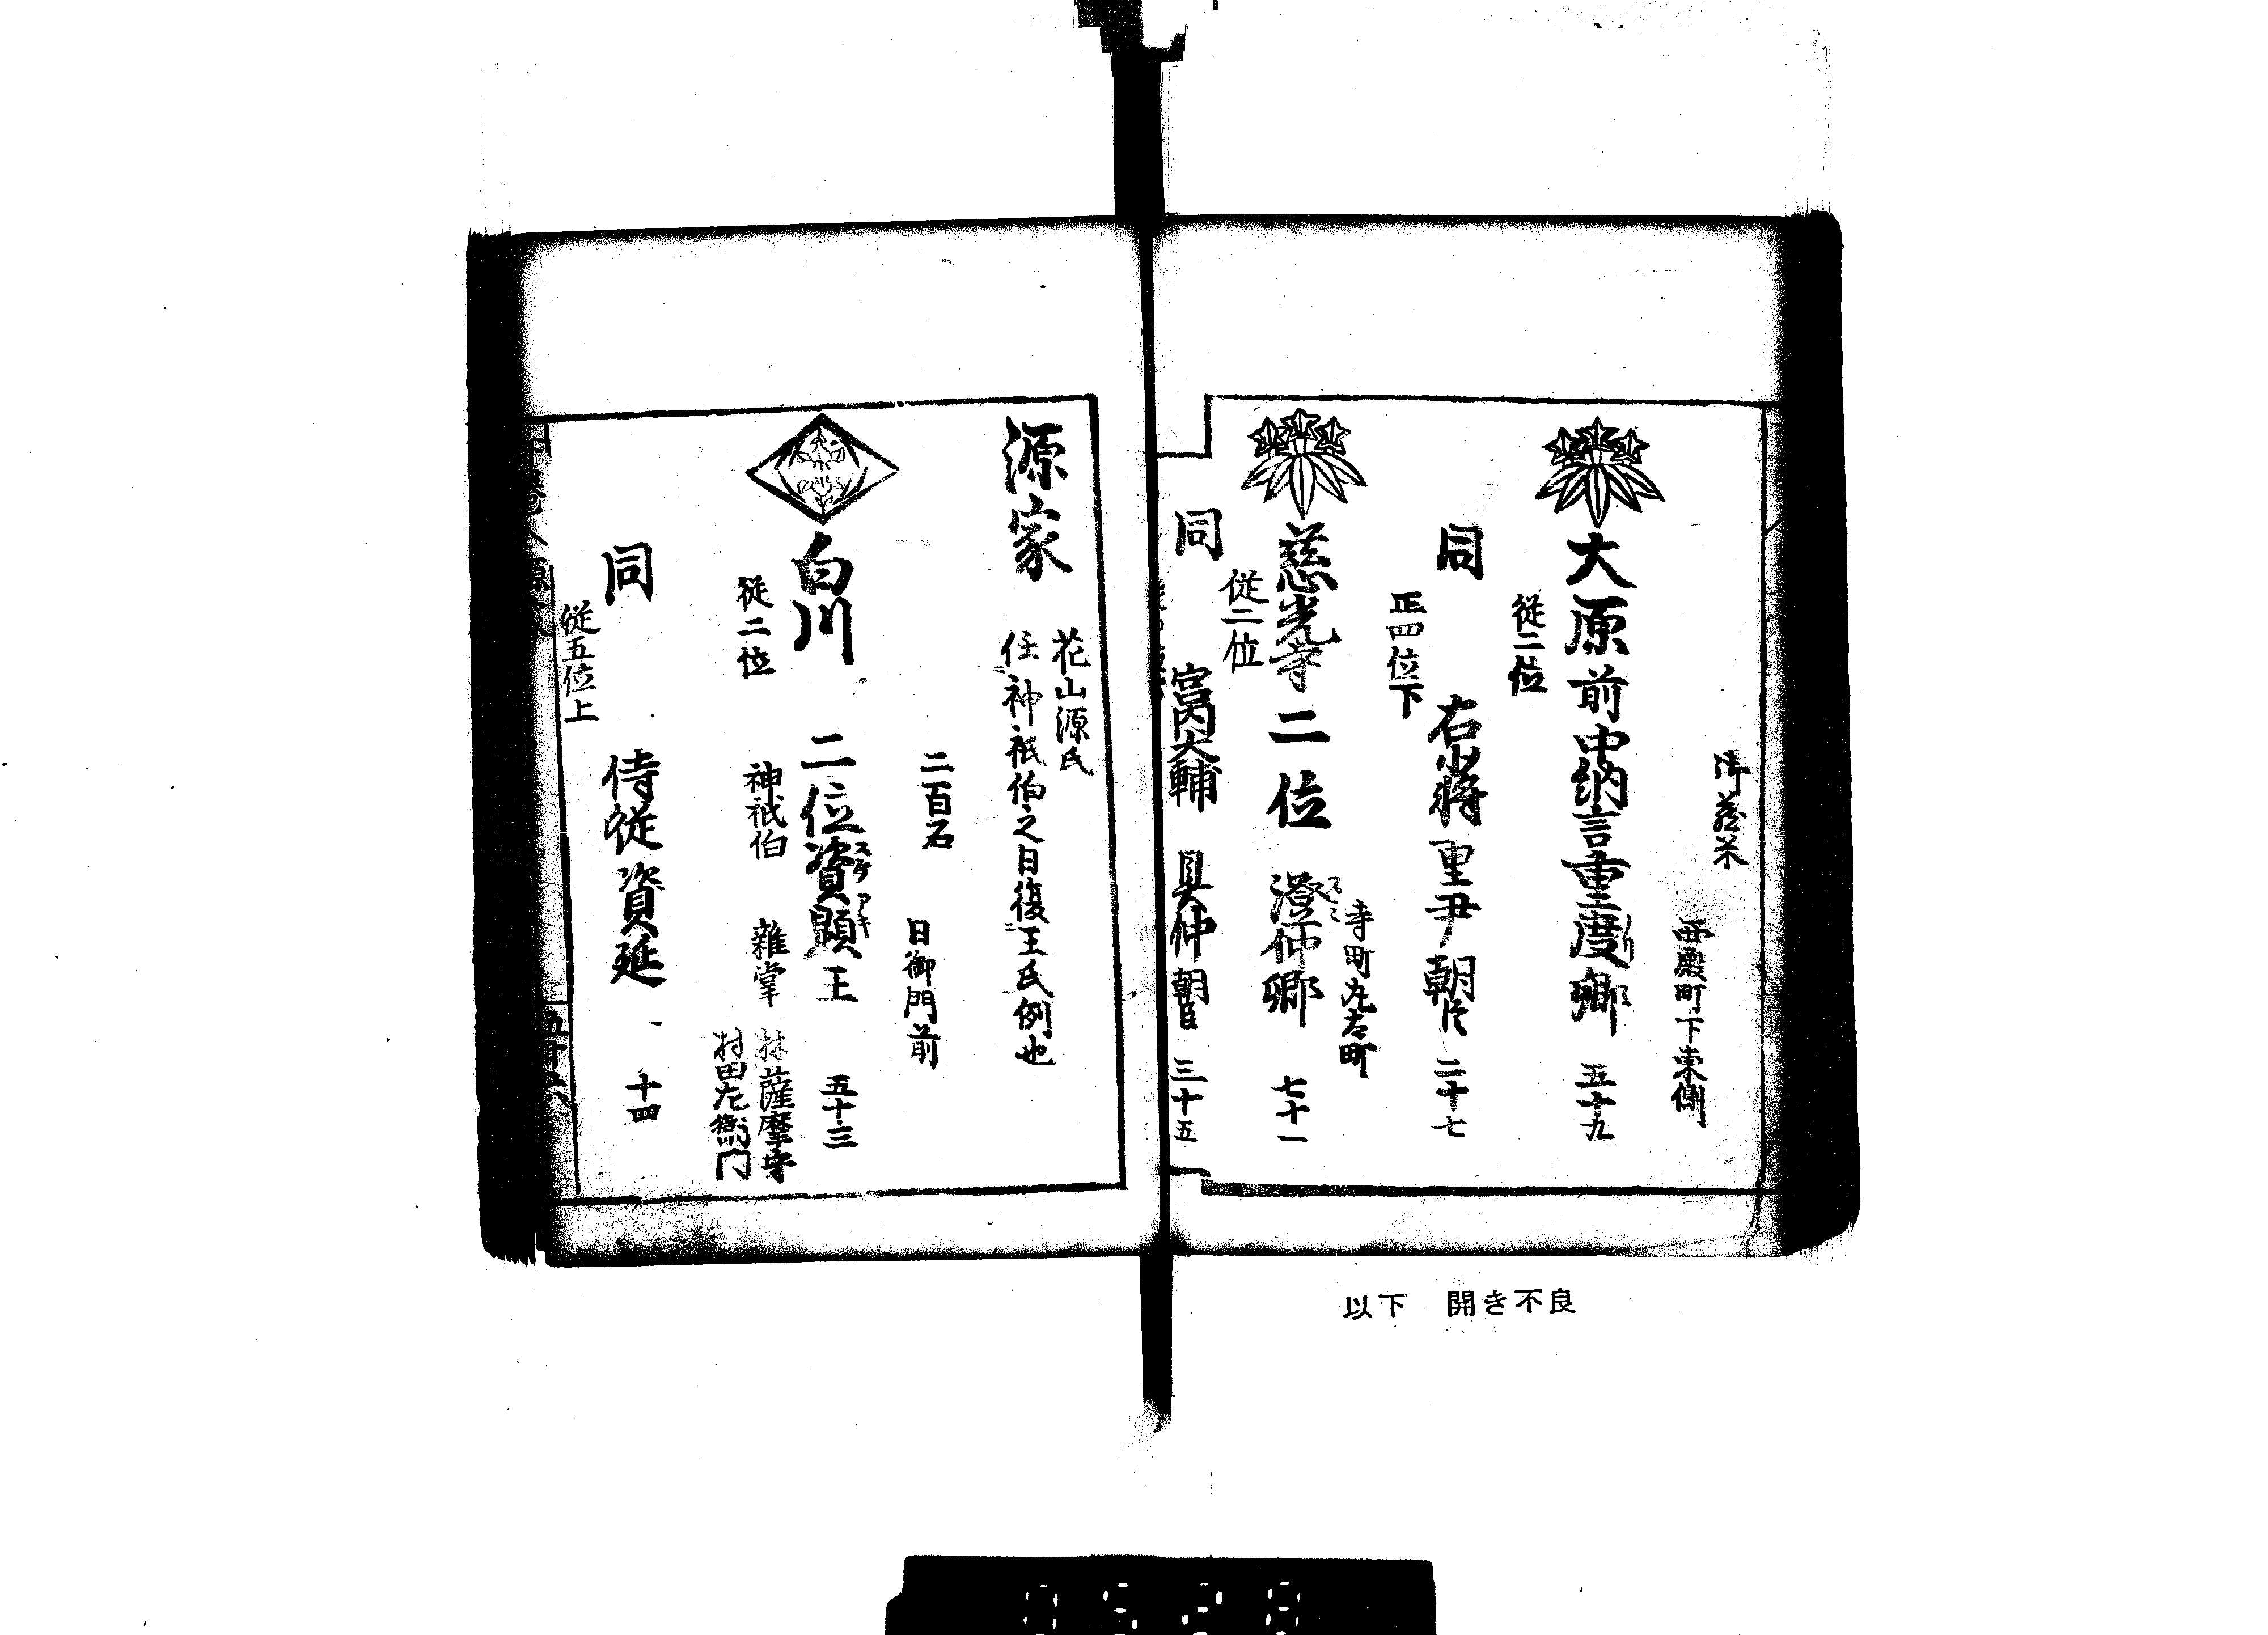 御蔵米
西殿町下東側
大原前中納言重度卿 五十九
従二位
同 右少將重尹朝臣 二十七
正四位下
寺町丸太町
慈光寺二位 澄仲卿 七十一
スミ
従二位
同 宮内大輔 具仲朝臣 三十五
源家
花山源氏
任神祇伯之日復王氏例也
二百石
日御門前
白川 二位資顕王 五十三
スケ アキ
従二位 神祇伯 雜掌
林薩摩守
村田左衛門
同 侍従資延 十四
従五位上
五十六
以下 開き不良